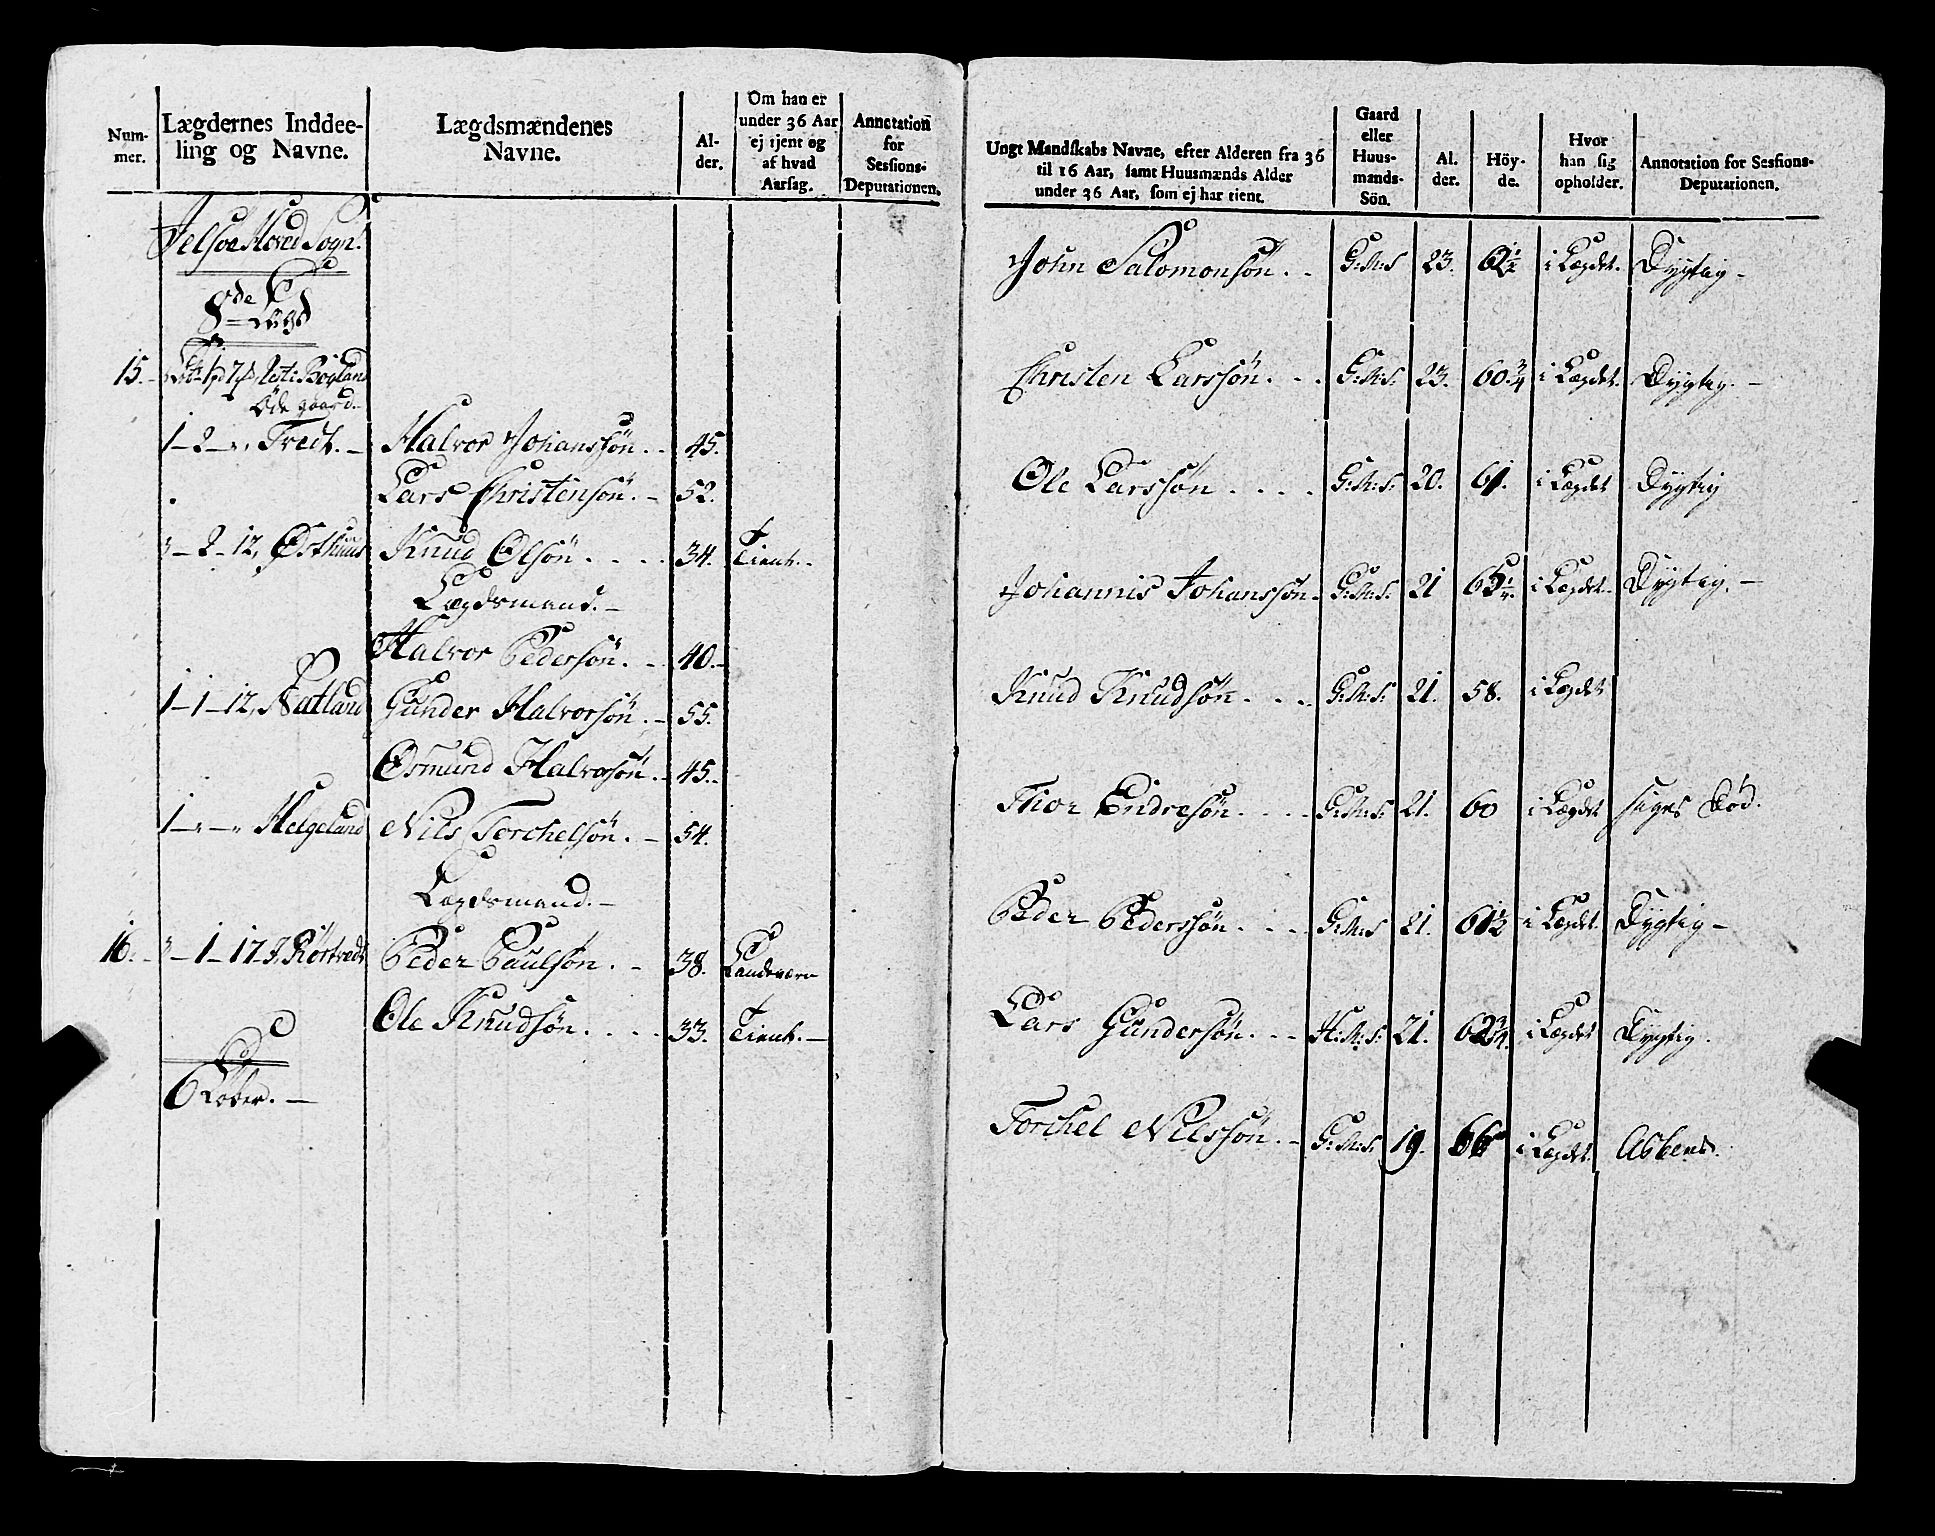 Num-
mer.
Lægdernes Inddee-
ling og Navne.
Lægdsmændenes
Navne.
Al-
der.
Om han er
under 36 Aar
ej tjent og
af hvad
Aarsag.
Annotation
for
Sessions-
Deputationen.
Jelsøe Hoved Sogn.
8de Lægd
15. Böyland
Öde gaard
1 - 2 - „ Tvedt. - Halvor Johanssön. . 45.
Lars Christensön. - 52.
„ - 2 - 12, Østhuus Knud Olsön . . . . 34. Tient. -
Lægdsmand. -
Halvor Pedersön. - 40. -
1 - 1 - 12, Natland Gunder Halvorsön. - 55.
Osmund Halvorsön. - 45. -
1 - „ - „ Helgeland Nils Torchelsön. - 54.
Lægdsmand. -
16. - „ - 1 - 17 - Rörtvedt Peder Paulsön. - 38. Landeværn
Ole Knudsön. . . . 33. Tient. -
6 Løber. -
Ungt Mandskabs Navne, efter Alderen fra 36
til 16 Aar, samt Huusmænds Alder
under 36 Aar, som ej har tient.
Gaard
eller
Huus-
mands-
Sön.
Al.
der.
Höy-
de.
Hvor
han sig
opholder.
Annotation for Sessions-
Deputationen.
John Salomonsön. . G:M:S 23. 61 1/2 i Lægdet. Dygtig -
Christen Larssön. . . G:M:S: 23. 60. 3/4 i Lægdet. Dygtig. -
Ole Larssön . . . . G:M:S: 20. 61. i Lægdet Dygtig
Johannis Johanssön - G:M:S: 21 65 1/4. i Lægdet. Dygtig. -
Knud Knudsön . . . G:M:S: 21. 58. i Lægdet
Thor Endresön. . . . G:M:S: 21. 60 i Lægdet siges Död.
Peder Pederssön . . . G:M:S 21. 61 1/2 i Lægdet. Dygtig -
Lars Gundersön. . - H:M:S: 21. 62 3/4. i Lægdet Dygtig.
Torchel Nilssön. - G:M:S: 19. i Lægdet.